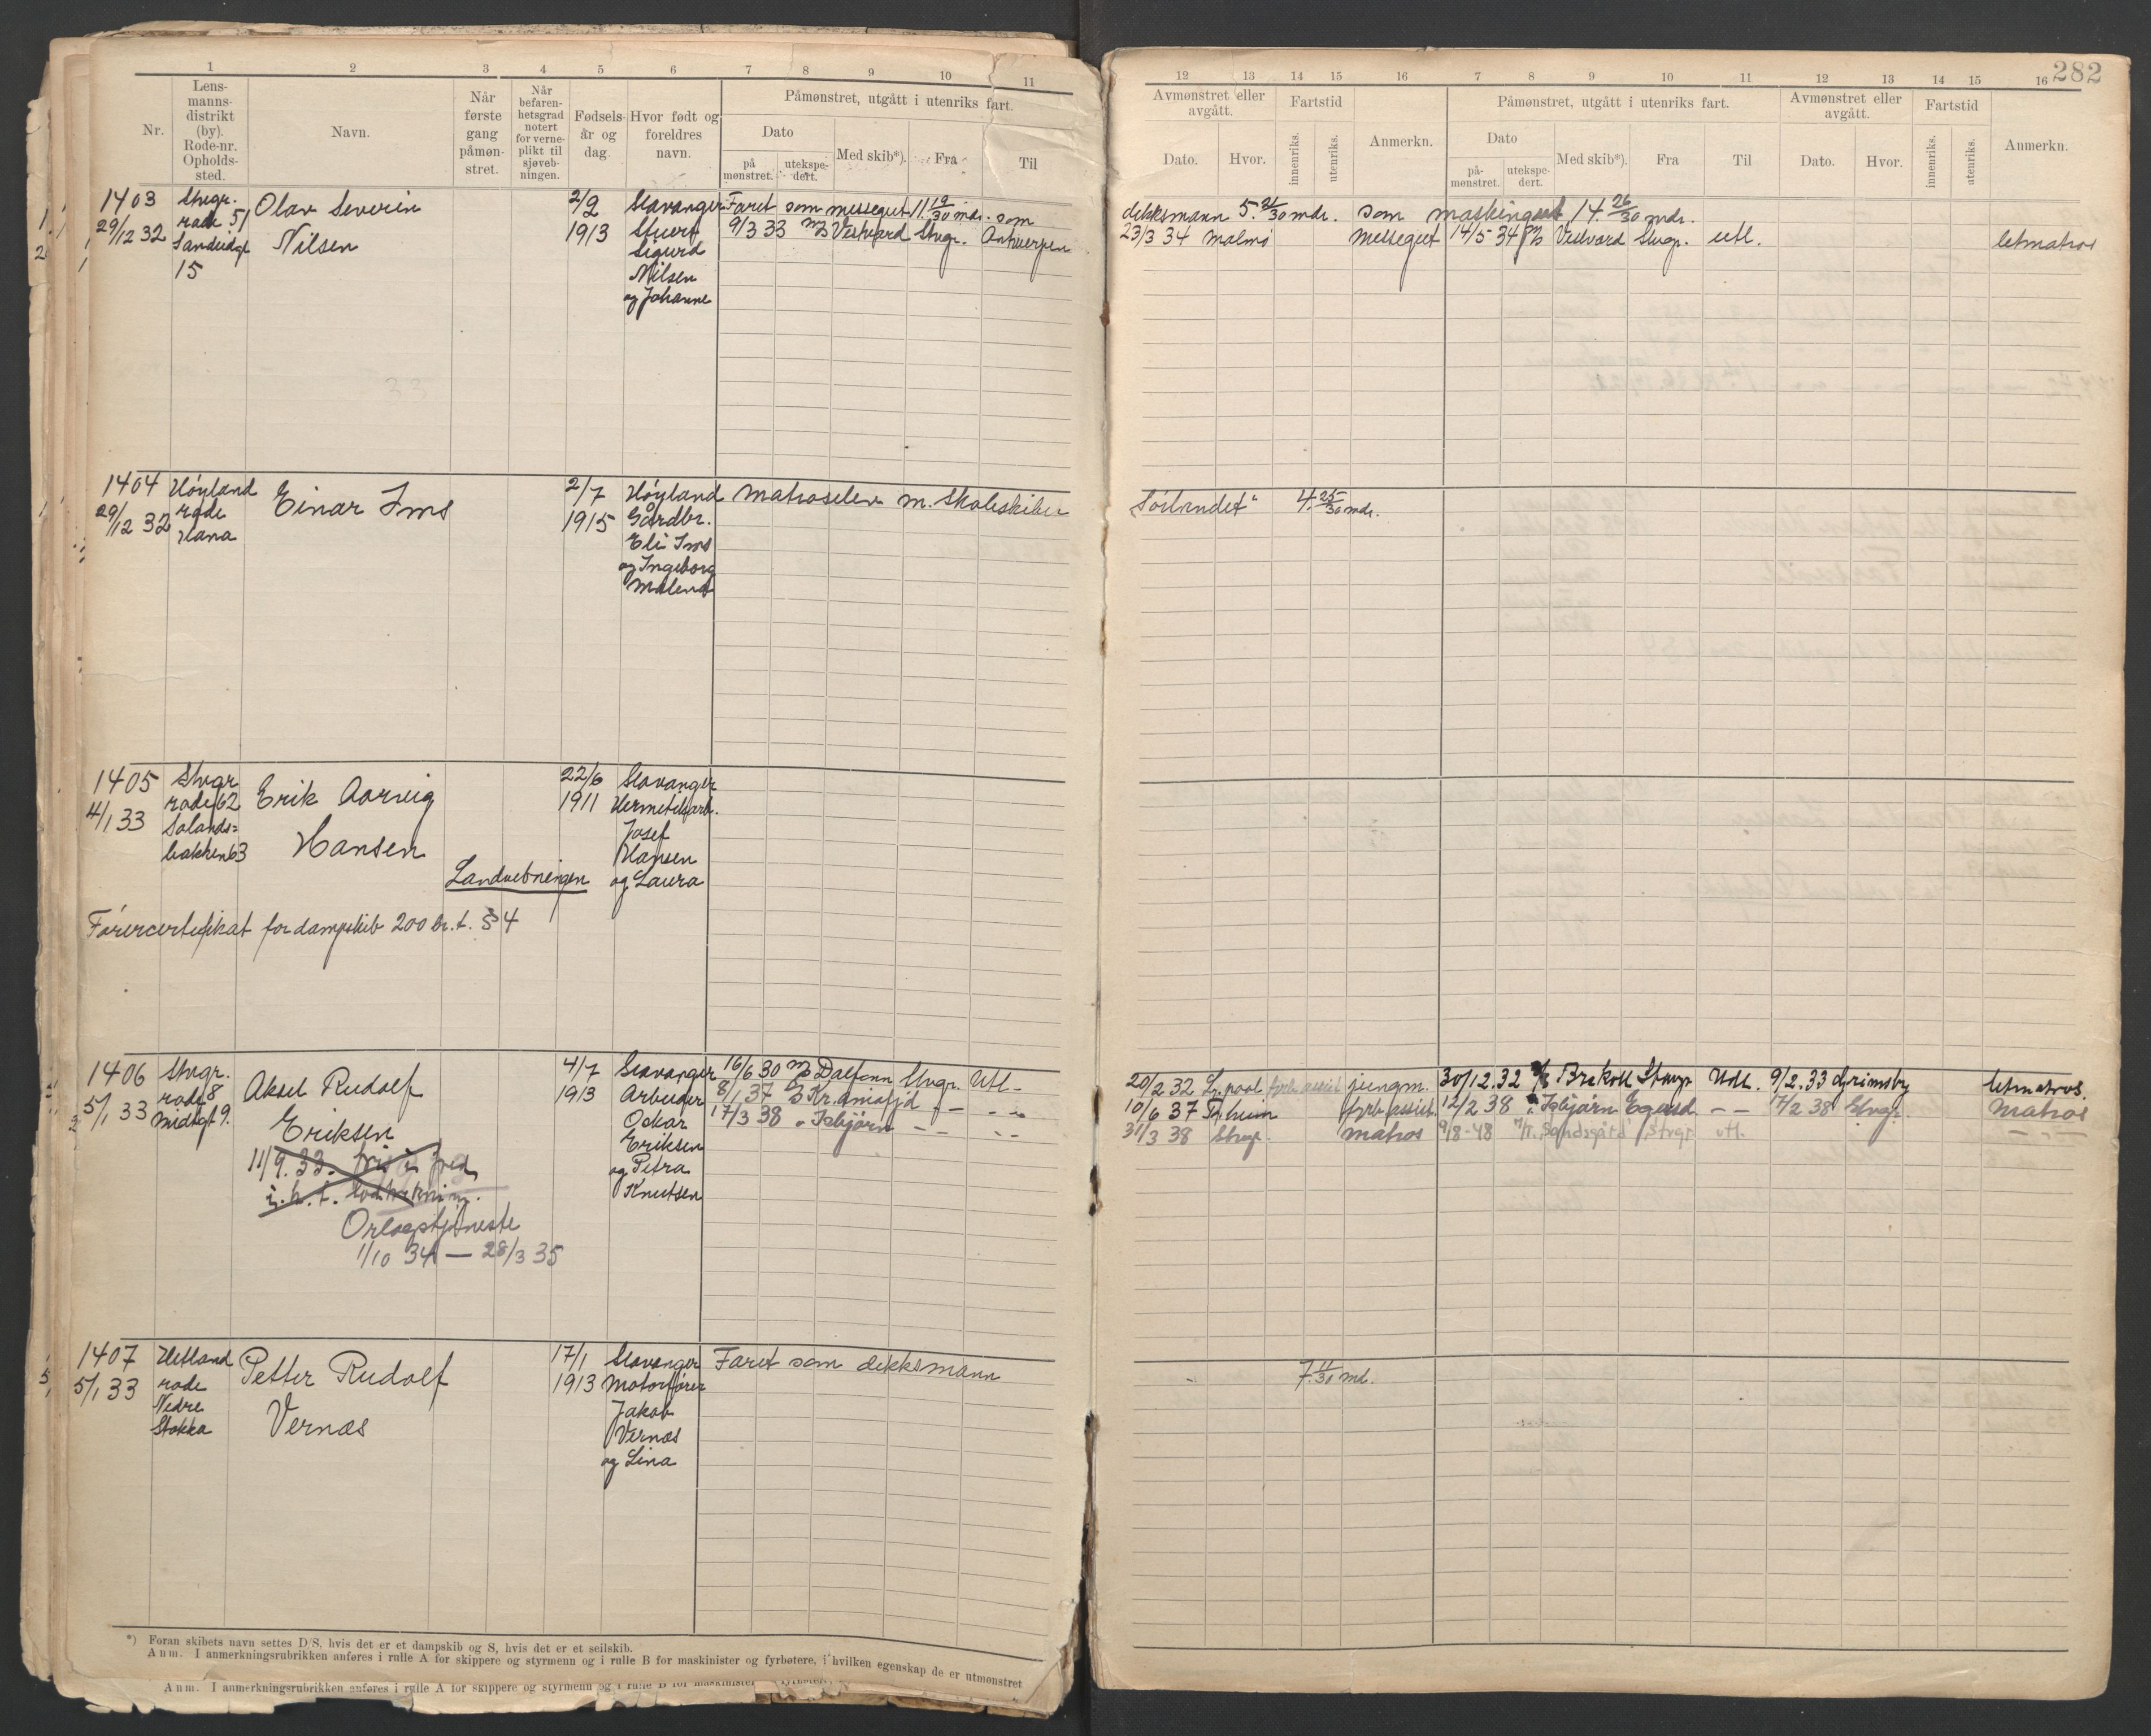 282
1 2 3 4 5 6 7 8 9 10 11
Nr.
Lens-
manns-
distrikt
(by).
Rode-nr.
Opholds-
sted.
Navn.
Når
første
gang
påmøn-
stret.
Når
befaren-
hetsgrad
notert
for verne-
plikt til
sjøveb-
ningen.
Fødsels-
år og
dag.
Hvor født og
foreldres
navn.
Påmønstret, utgått i utenriks fart.
Dato
på
mønstret.
utekspe-
dert.
Med skib*).
Fra
Til
12 13 14 15 16 7 8 9 10 11 12 13 14 15 16
Avmønstret eller
avgått.
Dato.
Hvor.
Fartstid
innenriks.
utenriks.
Anmerkn.
Påmønstret, utgått i utenriks fart.
Dato
på-
mønstret.
utekspe-
dert.
Med skib*).
Fra
Til
Avmønstret eller
avgått.
Dato.
Hvor.
Fartstid
innenriks.
utenriks.
Anmerkn.
1403
29/12 32
Stvgr.
rode 51
Sandvidgt
15
Olav Severin
Nilsen
2/2
1913
Stavanger
Stuert
Sigurd
Nilsen
og Johanne
Faret som messegut 11 19/30 mdr. som
dekksmann 5. 21/30 mdr. som maskingutt 14. 26/30 mdr.
9/3 33 m/s Vestvard Stvgr. Antwerpen
23/3 34 Malmø messegut 14/5 34 m/s Vestvard Stvgr. utl. letmatros
1404
29/12 32
Høyland
rode
Hana
Einar Ims
2/7
1915
Høyland
Gårdbr.
Eli Ims
og Ingeborg
Malena
Matroselev m. skoleskibet
Sørlandet" 4. 25/30 mdr.
1405
4/1 33
Stvgr
rode 62
Solands=
bakken 63
Erik Aarvig
Hansen
Landvebningen
22/6
1911
Stavanger
Hermetikarb.
Josef
Hansen
og Laura
Førercertifikat for dampskib 200 br. t. § 4
1406
5/1 33
Stvgr.
rode 8
Midtgt 9.
Aksel Rudolf
Eriksen
11/9.33. fri i fred
i.h.t. lodtrekning.
Orlogstjeneste
1/10 34 — 28/3 35
4/7
1913
Stavanger
Arbeider
Oskar
Eriksen
og Petra
Knutsen
16/6 30 m/s Dalfonn Stvgr. Utl.
8/1 37 D/S Kr.aniafjd — —
17/3 38 " Isbjørn — —
20/2 32 L.pool fyrb.assist jungm. 30/12.32 Stvgr Utl. 9/2.33 Grimsby letmatros.
10/6 37 Tr.heim fyrb.assist. 12/2 38 " Isbjørn Egersd. — — 17/2 38 Stvgr. Matros
31/3 38 Stvgr. matros 9/8-48 M/T. Sandsgård Stvgr. utl. — " —
1407
5/1 33
Hetland
rode
Nedre
Stokka
Petter Rudolf
Vernes
17/1
1913
Stavanger
Motorfører
Jakob
Vernes
og Lina
Faret som dekksmann
7. 11/30 md.
*) Foran skibets navn settes D/S, hvis det er et dampskib og S, hvis det er et seilskib.
Anm. I anmerkningsrubrikken anføres i rulle A for skippere og styrmenn og i rulle B for maskinister og fyrbøtere, i hvilken egenskap de er utmønstret
Anm. I anmerkningsrubrikken anføres i rulle A for skippere og styrmenn og i rulle B for maskinister